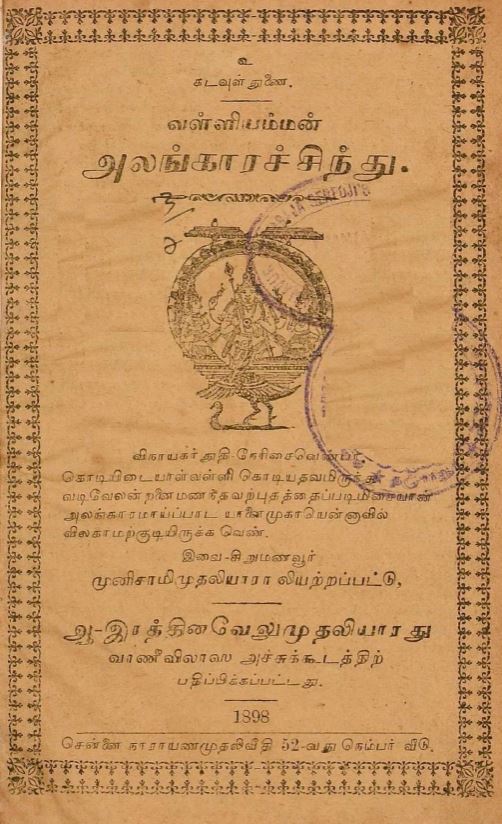 உ
கடவுள் துணை.
வள்ளியம்மன்
அலங்காரச்சிந்து.
விநாயகர் துதி-நேரிசைவெண்பா
கொடியிடையாள்வள்ளி கொடியதவமிருந்து
வடிவேலன் றனைமணந்தவற்புதத்தைப்படிமிசையான்
அலங்காரமாய்ப்பாட யானைமுகாயென்னாவில்
விலகாமற்குடியிருக்க வெண்.
இவை-சிறுமணவூர்
முனிசாமிமுதலியாரா லியற்றப்பட்டு,
ஆ-இரத்தினவேலுமுதலியாரது
வாணீவிலாஸ அச்சுக்கூடத்திற்
பதிப்பிக்கப்பட்டது.
1898
சென்னை நாராயணமுதலிவீதி 52-வது நெம்பர் வீடு.